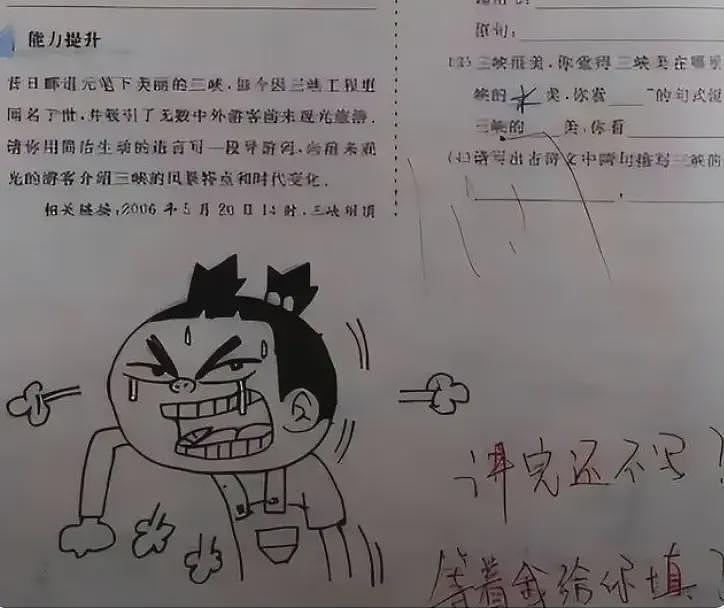 能力提升
昔日郦道元笔下美丽的三峡,如今因三峡工程更
闻名于世,并吸引了无数中外游客前来观光旅游.
请你用简洁生动的语言写一段导游词,向前来观
光的游客介绍三峡的风景特点和时代变化.
相关链接:2006年5月20日14时,三峡坝顶
原句:
(3)三峡很美,你觉得三峡美在哪里
峡的水美,你看____"的句式说
三峡的____美,你看
(4)请写出古诗文中两句描写三峡的
讲完还不写?
等着我给你填?